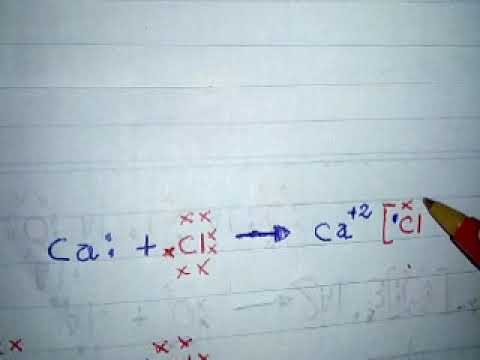 Ca: + Cl → Ca+2 [Cl